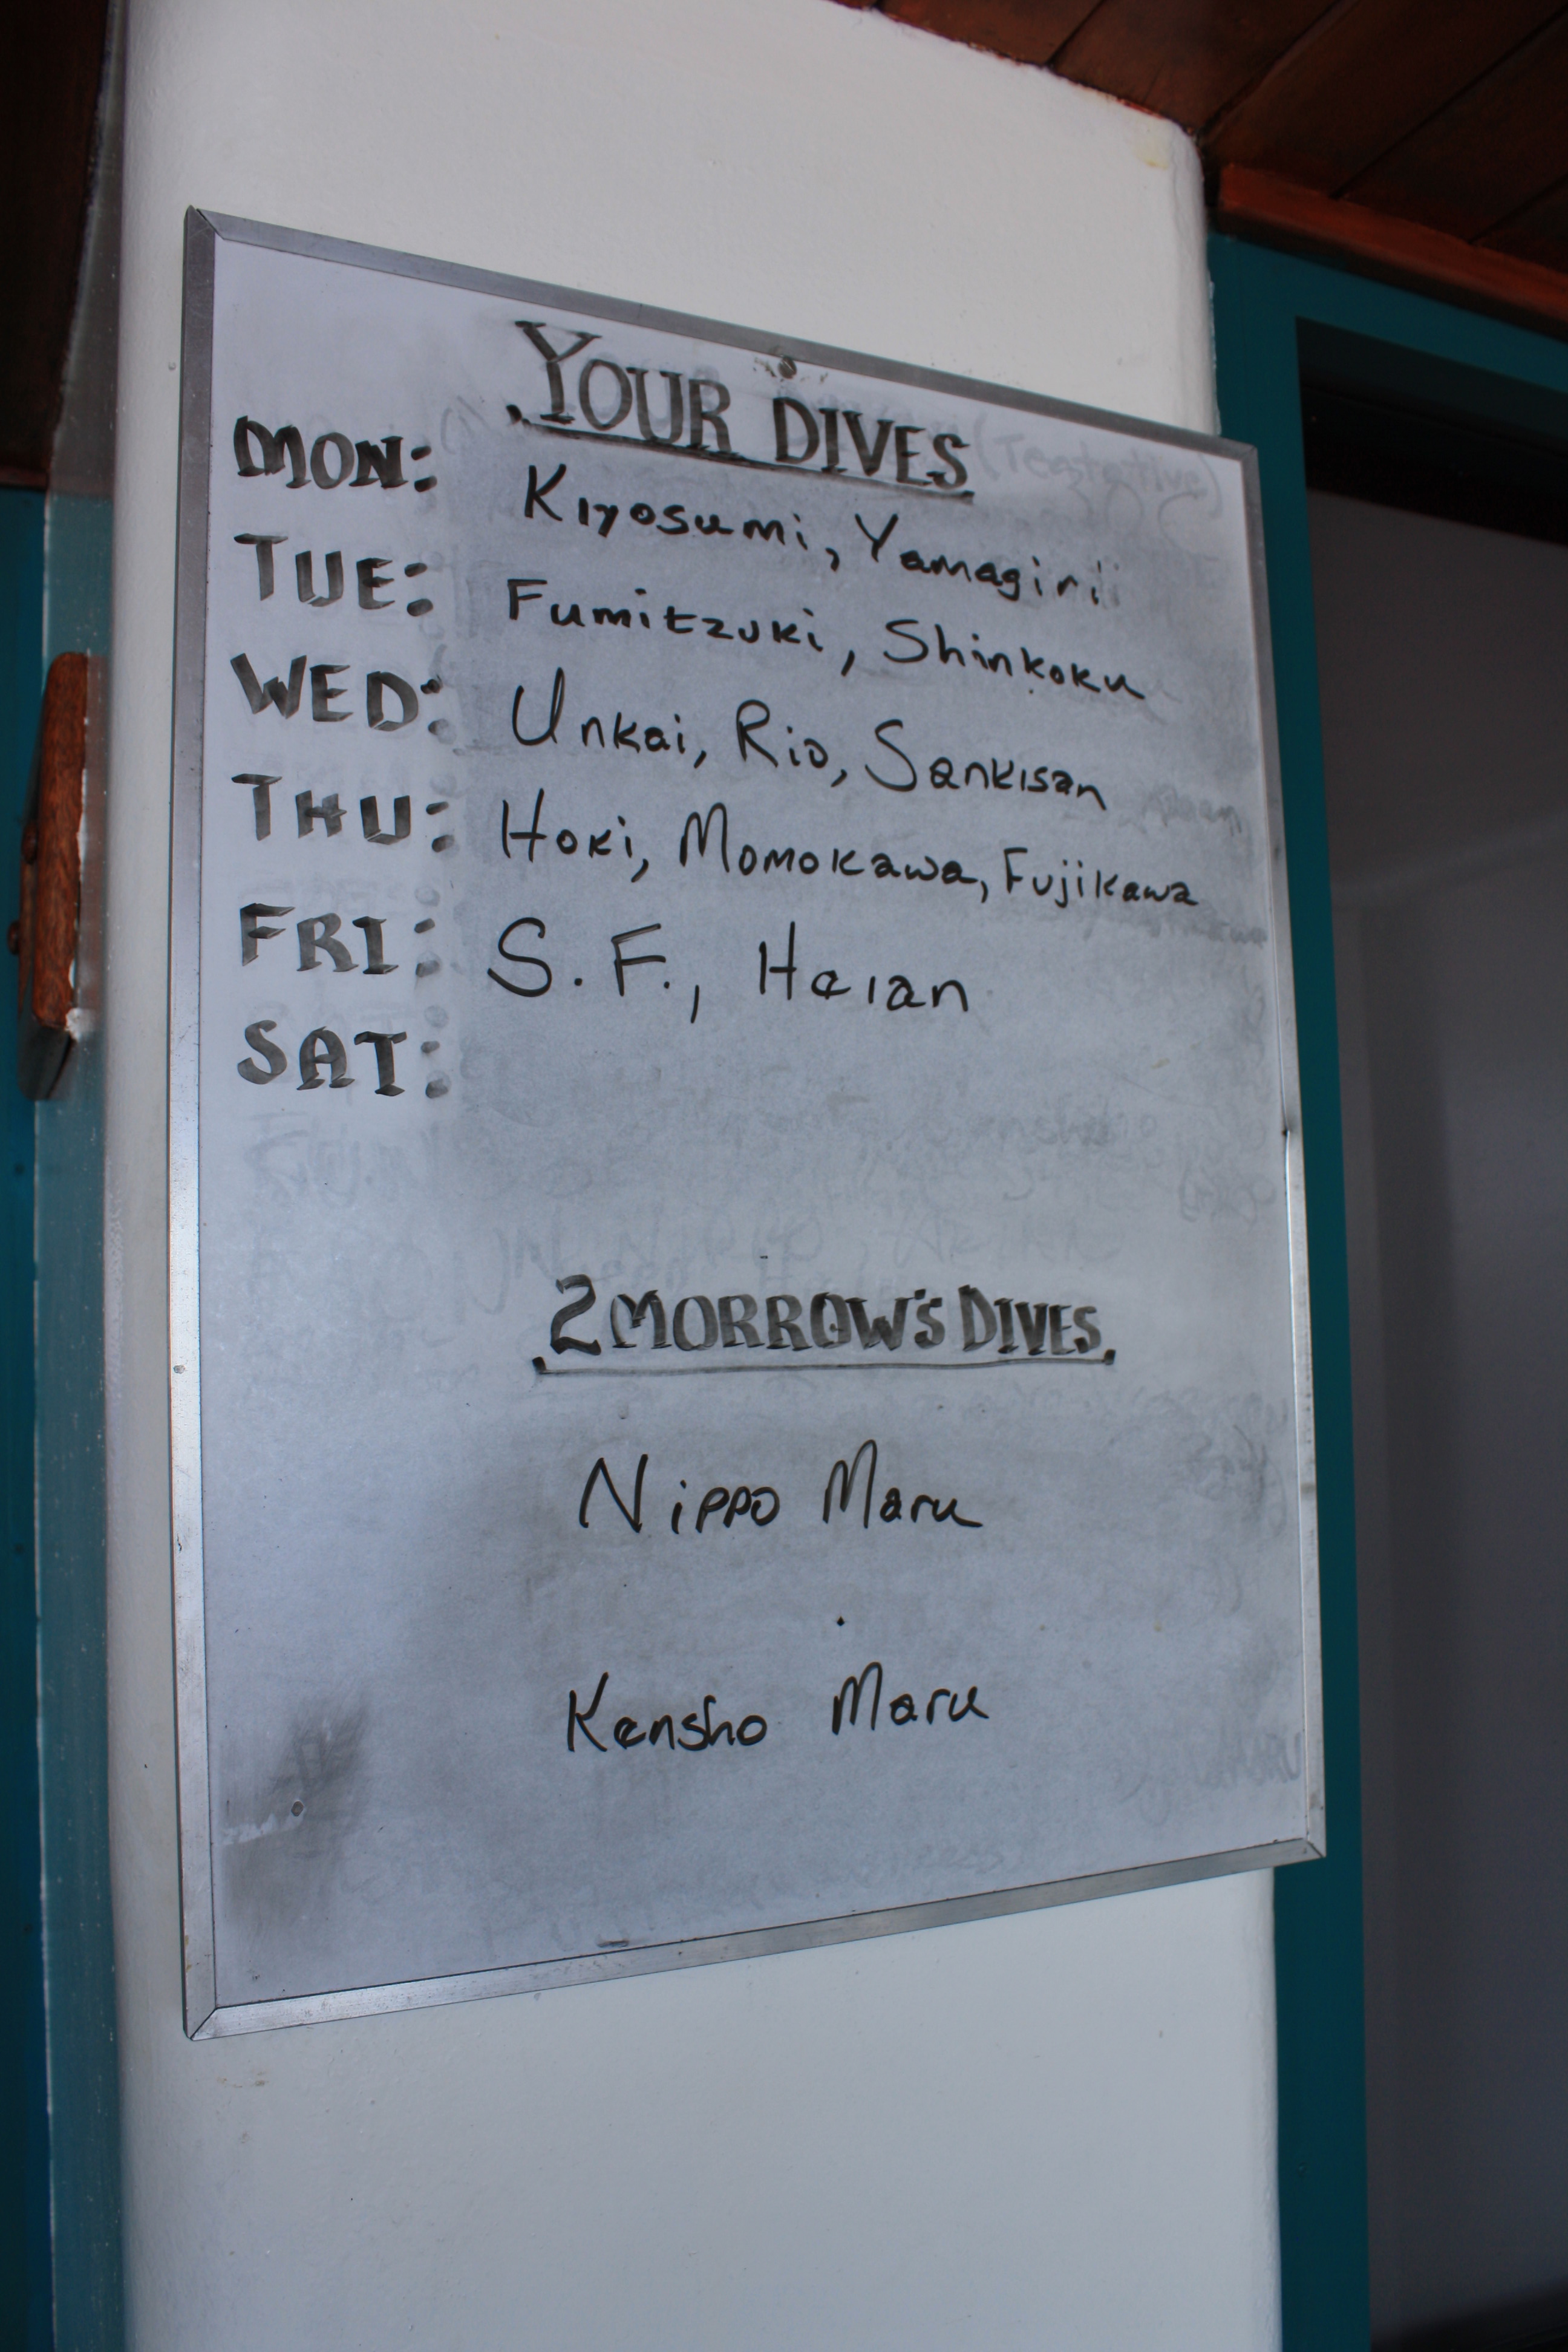 YOUR DIVES
MON: Kiyosumi, Yamagiri
TUE: Fumitzuki, Shinkoku
WED: Unkai, Rio, Sankisan
THU: Hoki, Momokawa, Fujikawa
FRI: S.F., Heian
SAT:
2MORROW'S DIVES
Nippo Maru
Kensho Maru